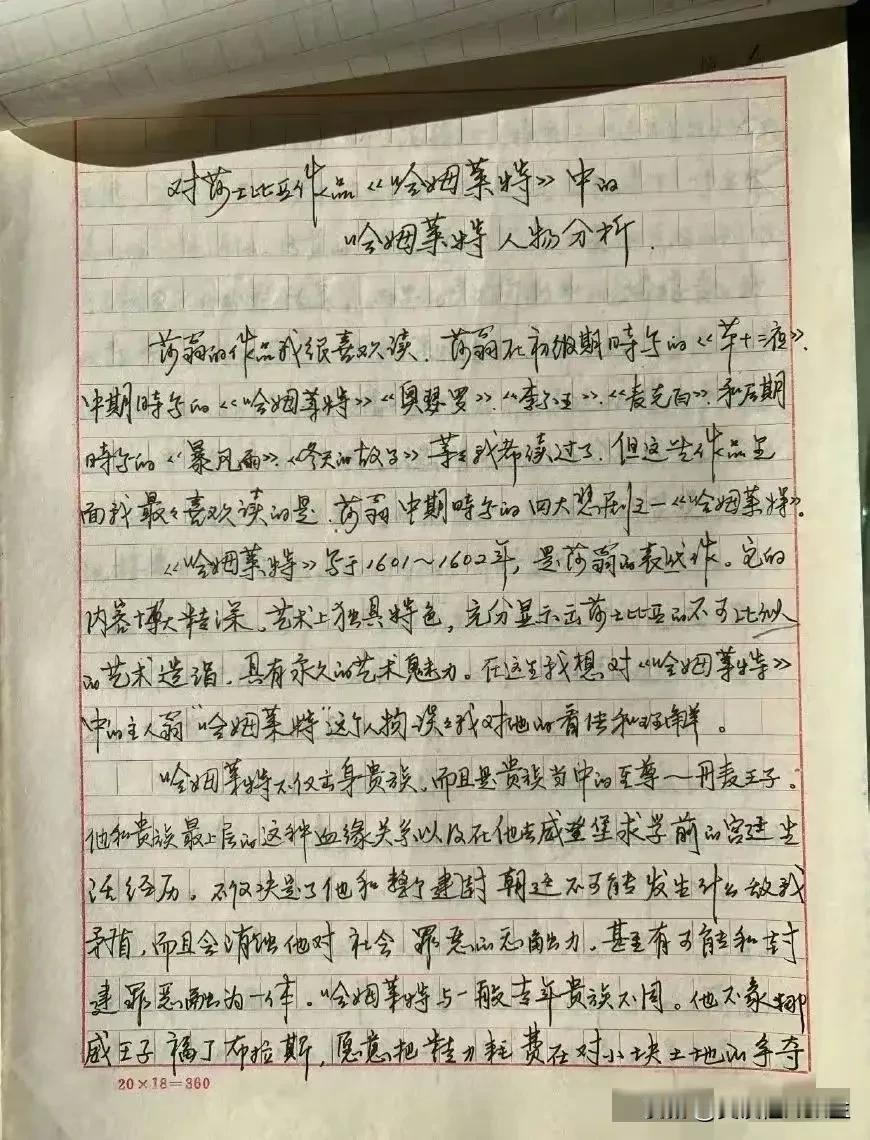 对莎士比亚作品《哈姆莱特》中的
哈姆莱特人物分析.
莎翁的作品我很喜欢读.莎翁在初级期时写的《第十二夜》.
中期时写的《哈姆莱特》《奥瑟罗》.《李尔王》.《麦克白》.和后期
时写的《暴风雨》.《冬天的故事》等我都读过了.但这些作品里
面我最最喜欢读的是.莎翁中期时写的四大悲剧之一《哈姆莱特》.
《哈姆莱特》写于1601~1602年,是莎翁的表代作。它的
内容博大精深.艺术上独具特色,充分显示出莎士比亚的不可比似
的艺术造诣.具有永久的艺术魅力。在这里我想对《哈姆莱特》
中的主人翁“哈姆莱特”这个人物谈谈我对他的看法和理解。
哈姆莱特不仅出身贵族.而且是贵族当中的至尊—丹麦王子。
他和贵族最上层的这种血缘关系以及在他去威登堡求学前的宫廷生
活经历。不仅决定了他和整个建封朝廷不可能发生什么敌我
矛盾,而且会消蚀他对社会罪恶的感触力.甚至有可能和封
建罪恶融为一体。哈姆莱特与一般青年贵族不同。他不象挪
威王子福丁布拉斯,愿意把精力耗费在对小块土地的争夺
20×18=360